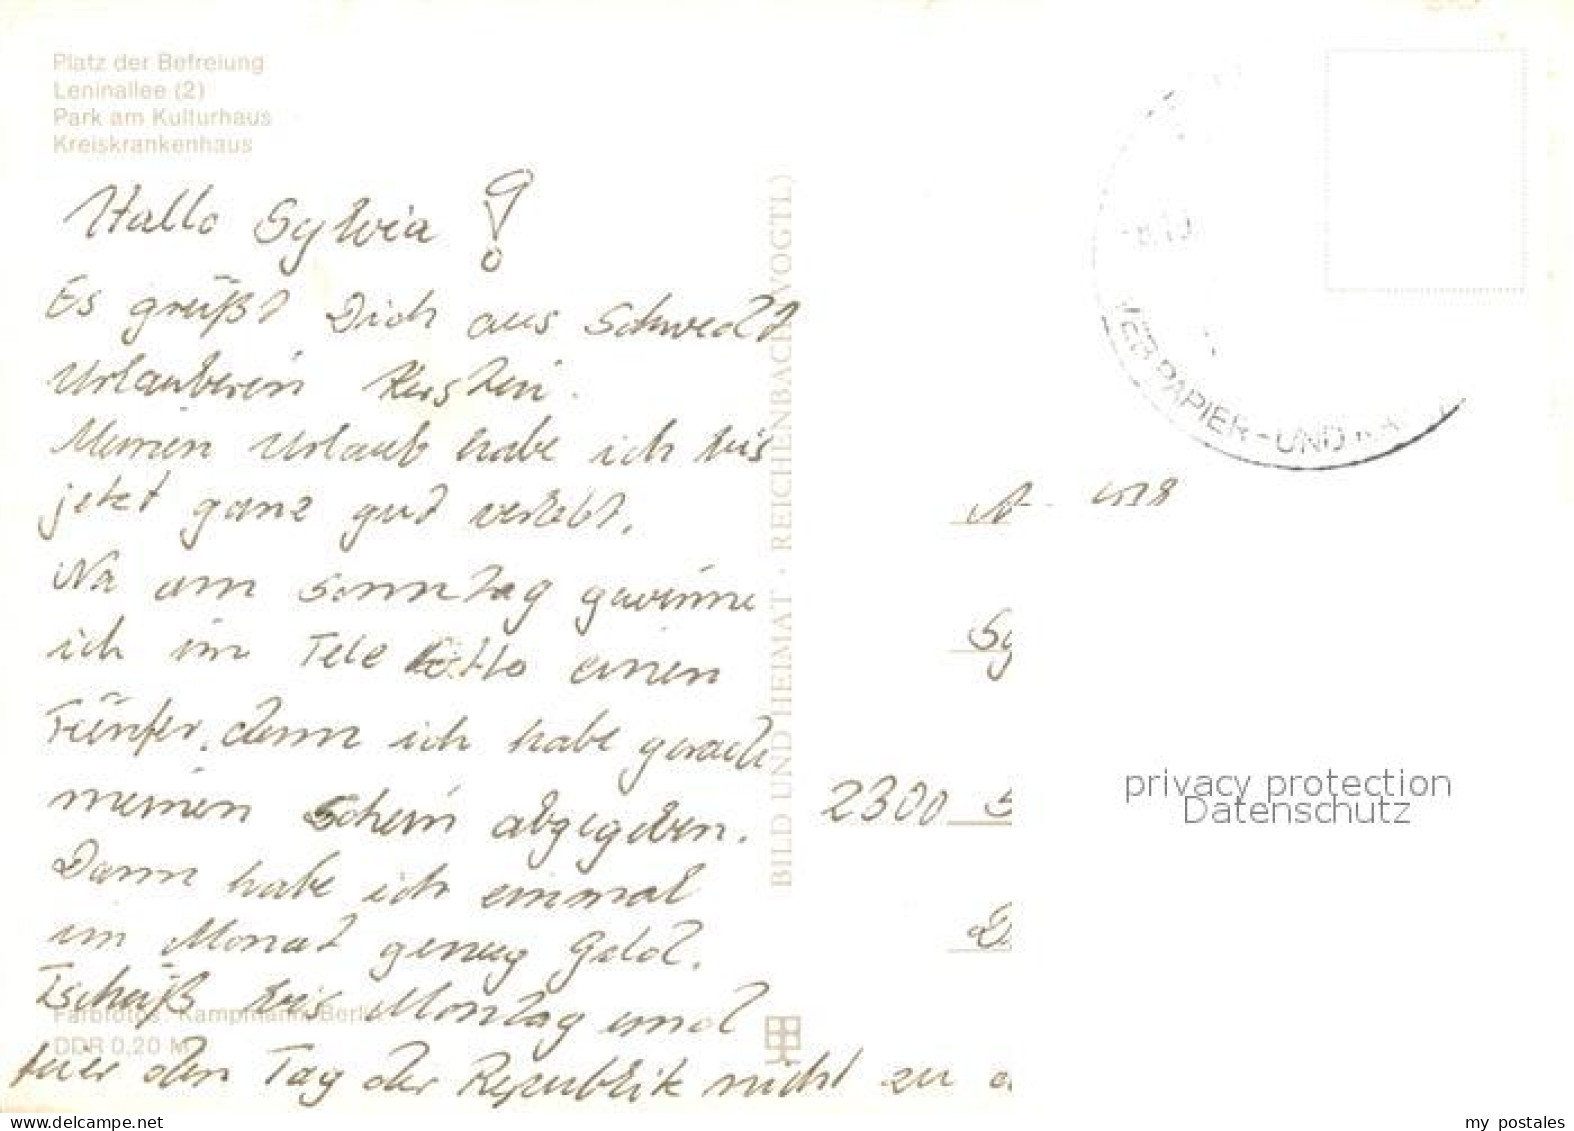 Platz der Befreiung
Leninallee (2)
Park am Kulturhaus
Kreiskrankenhaus
Hallo Sylvia!
Es grüßt Dich aus Schwedt
Urlauberin Kerstin.
Meinen Urlaub habe ich bis
jetzt ganz gut verlebt.
Na am Sonntag gewinne
ich im Tele Lotto einen
Fünfer, denn ich habe gerade
meinen Schein abgegeben.
Dann habe ich einmal
im Monat genug Geld.
Tscheiß bis Montag und
feier den Tag der Republik nicht zu
Farbfotos: Kampmann, Berlin
DDR 0,20 M
BILD UND HEIMAT · REICHENBACH (VOGTL)
VEB PAPIER-UND
Sy
2300 S
privacy protection
Datenschutz
my postales